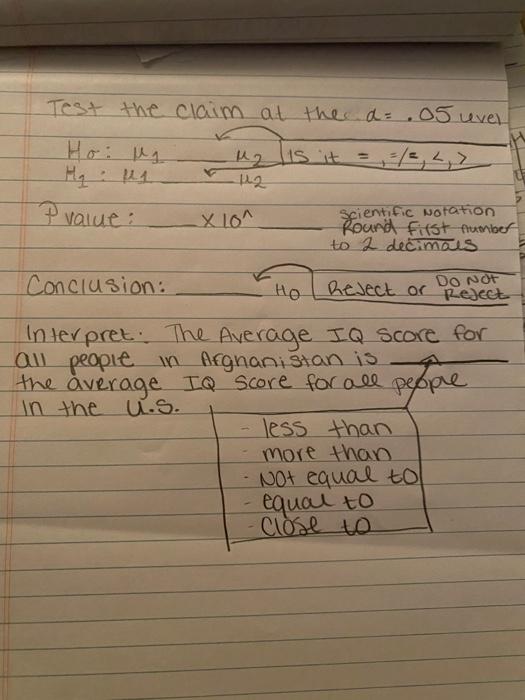 Test the claim at the α = .05 level
H₀: μ₁ ____ μ₂ Is it =, =/=, <, >
H₁: μ₁ ____ μ₂
P value: ___ x 10^ ____ Scientific Notation
Round first number
to 2 decimals
Conclusion: ____ H₀ Reject or Do Not
Reject
Interpret: The Average IQ Score for
all people in Afghanistan is ____
the average IQ Score for all people
in the U.S.
- less than
- more than
- Not equal to
- equal to
- close to